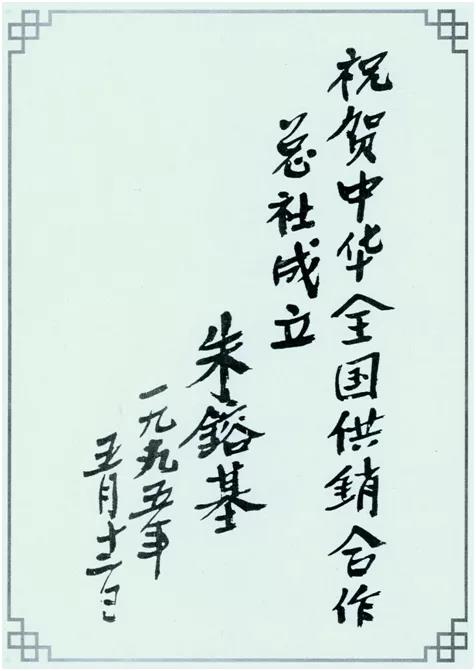 祝贺中华全国供销合作
总社成立
朱镕基
一九九五年
五月十二日